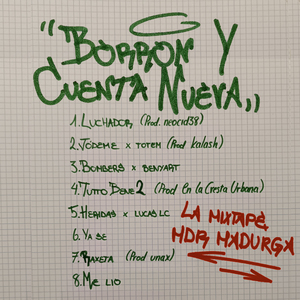 "BORRÓN Y
CUENTA NUEVA"
1. LUCHADOR (Prod. neocid38)
2. JÓDEME x TOTEM (Prod Kalash)
3. BOMBERS x BENYART
4. TUTTO BENE 2 (Prod En la Cresta Urbana)
5. HERIDAS x LUCAS LC
6. YA SE
7. RAXETA (Prod unax)
8. ME LIO
LA MIXTAPE
MDR MADURGA